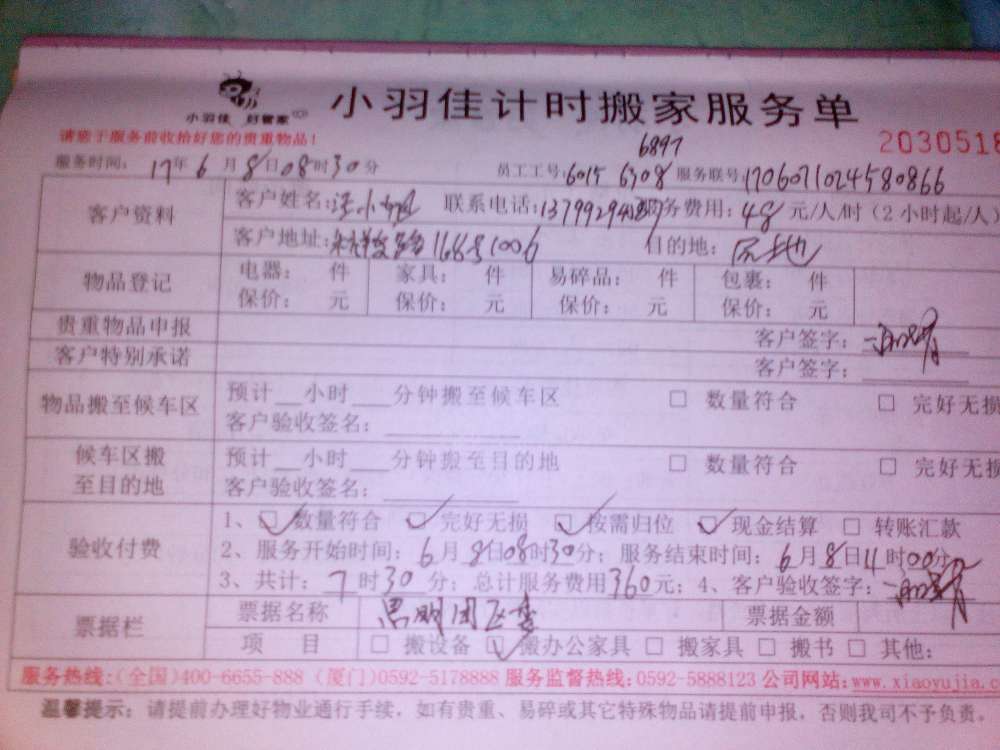 小羽佳 好管家
小羽佳计时搬家服务单
请您于服务前收拾好您的贵重物品！
2030518
6897
服务时间： 17年 6月 8日 08时 30分 员工工号：6015 6308 服务联号：1706071024580866
客户资料 客户姓名：汪小 联系电话：13799294 服务费用：48元/人/时（2小时起/人）
客户地址： 166号1006 目的地：原地
物品登记 电器： 件 家具： 件 易碎品： 件 包裹： 件
保价： 元 保价： 元 保价： 元 保价： 元
贵重物品申报 客户签字：
客户特别承诺 客户签字：
物品搬至候车区 预计__小时___分钟搬至候车区 □ 数量符合 □ 完好无损
客户验收签名：
候车区搬至目的地 预计__小时___分钟搬至目的地 □ 数量符合 □ 完好无损
客户验收签名：
验收付费 1、☑ 数量符合 ☑ 完好无损 ☑ 按需归位 ☑ 现金结算 □ 转账汇款
2、服务开始时间：6月8日08时30分；服务结束时间：6月8日11时00分
3、共计：7时30分；总计服务费用360元；4、客户验收签字：
票据栏 票据名称 思明团区委 票据金额
项 目 □ 搬设备 ☑ 搬办公家具 □ 搬家具 □ 搬书 □ 其他：
服务热线：（全国）400-6655-888（厦门）0592-5178888 服务监督热线：0592-5888123 公司网站：www.xiaoyujia.c
温馨提示：请提前办理好物业通行手续，如有贵重、易碎或其它特殊物品请提前申报，否则我司不予负责。